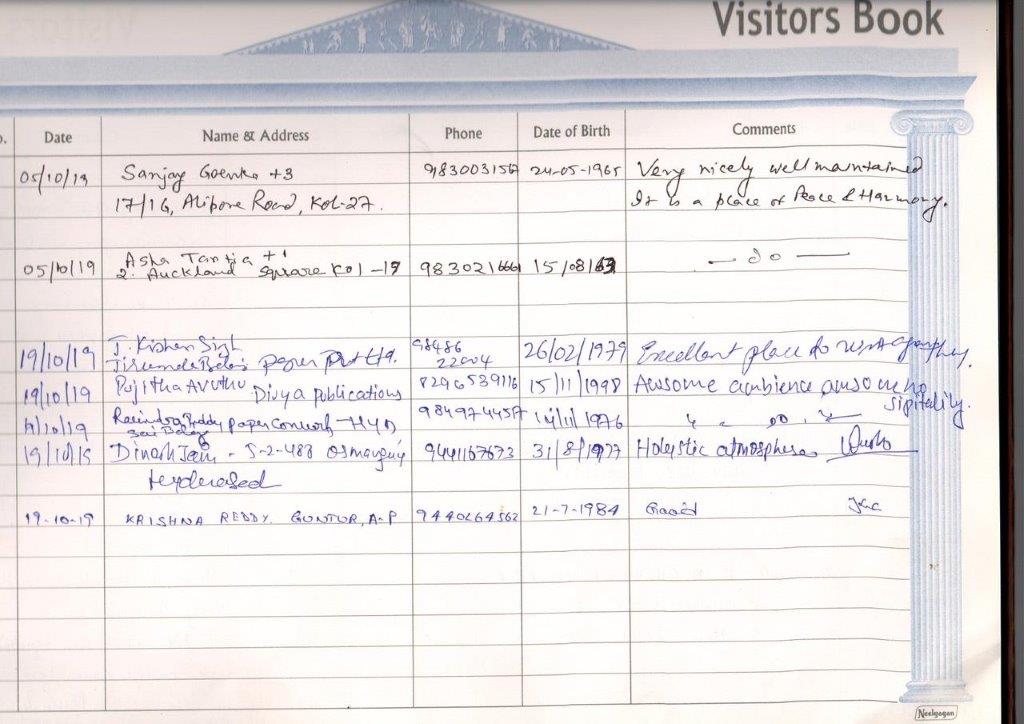 Visitors Book
Date Name & Address Phone Date of Birth Comments
05/10/19 Sanjay Goenka +3 9830031567 24-05-1965 Very nicely well maintained
17/1G, Alipore Road, Kol-27. It is a place of Peace & Harmony.
05/10/19 Asha Tantia +1
2. Auckland Square Kol-17 983021666 15/08/63 — do —
19/10/19 J. Kishen Singh 98486 26/02/1979 Excellent place to
paper Pvt Ltd. 22204
19/10/19 Pujitha Avuthu Divya publications 8296539116 15/11/1998 Awsome ambience awsome ho
sipitality.
19/10/19 Ravindra Reddy paper - HYD 9849744517 14/11/1976 " " "
Sai Balaji
19/10/19 Dinesh Jain - 5-2-488 Osmangunj 9441167673 31/8/1977 Holystic atmosphere
Hyderabad
19-10-19 KRISHNA REDDY. GUNTUR, A-P 9440264562 21-7-1984 Good
Neelgagan